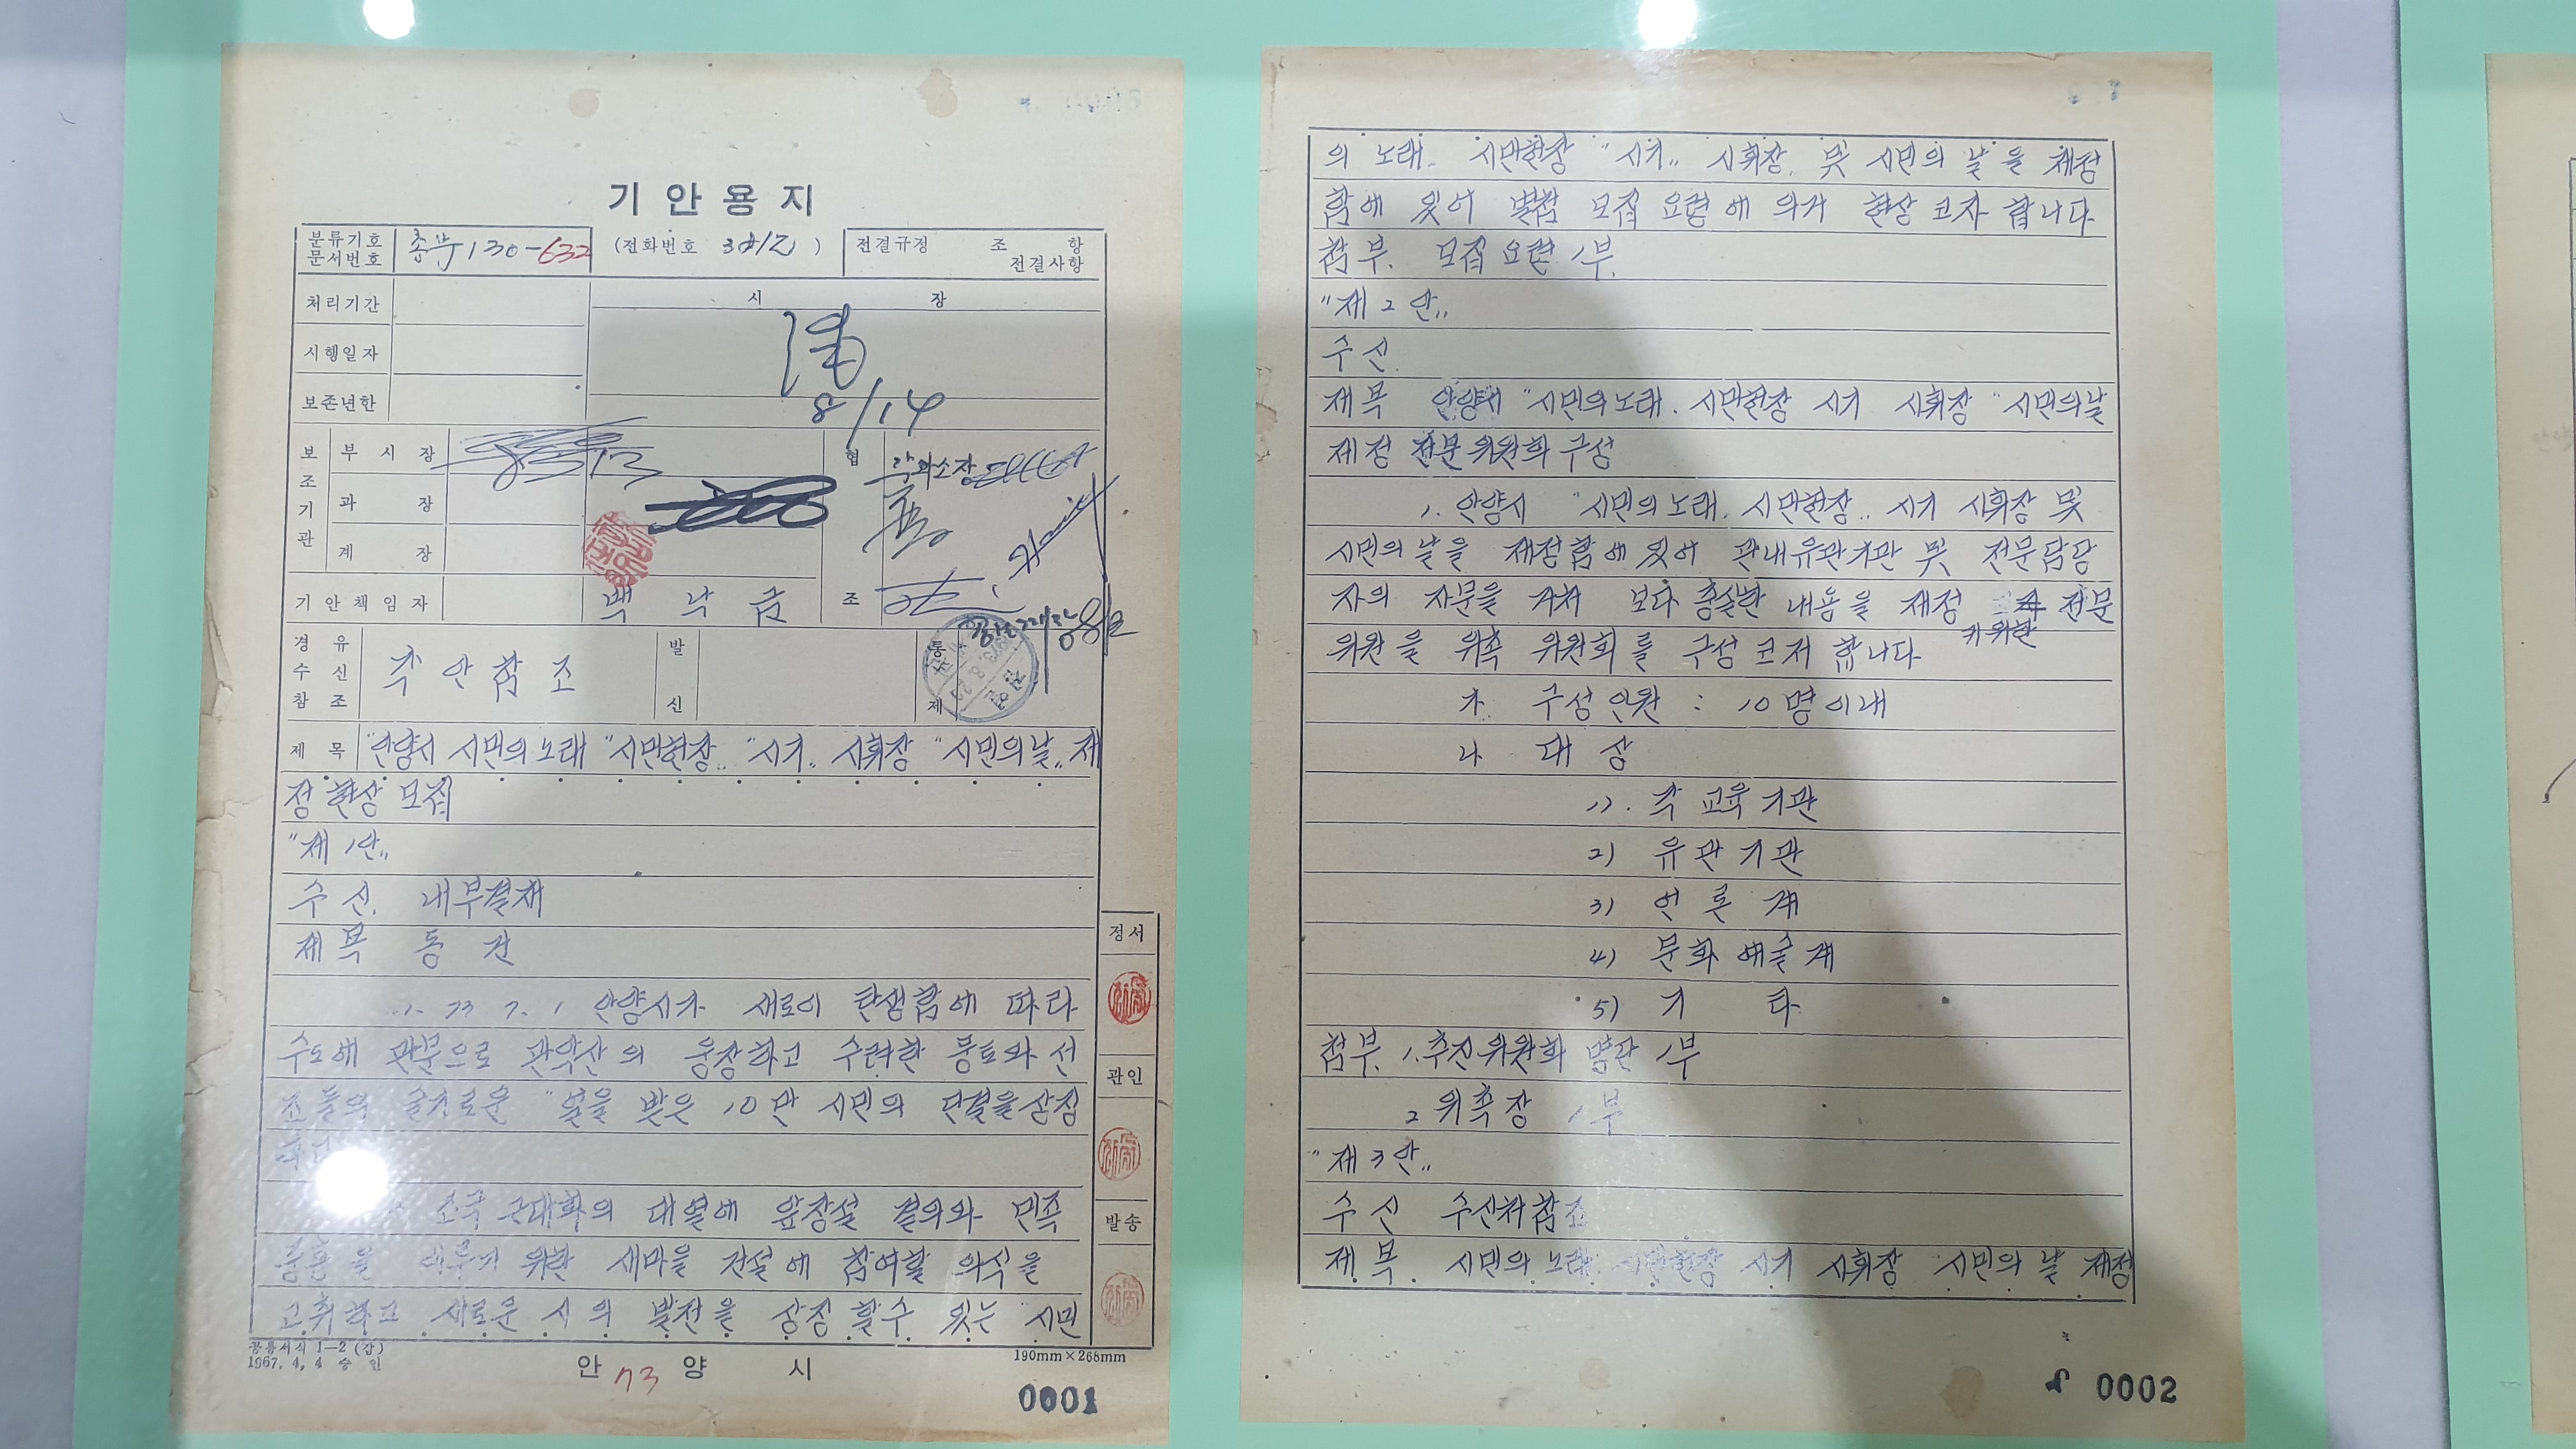 기안용지
분류기호 문서번호 총무130-632 (전화번호 ) 전결규정 조 항 전결사항
처리기간
시 장
시행일자
보존년한
8/14
보조기관
부시장
과장
계장
협조
기안책임자 백낙금
경유 수신 참조 각안참조
발신
통제
제목 "안양시 시민의노래 "시민헌장" "시기" 시휘장 "시민의날" 제
정 현상 모집
"제1안"
수신. 내부결재
제목 동건
1. 73 7. 1 안양시가 새로이 탄생함에 따라
수도에 관문으로 관악산의 웅장하고 수려한 풍토와 선
조들의 슬기로운 "얼을 받은 10만 시민의 단결을 상징
조국 근대화의 대열에 앞장설 결의와 민족
중흥을 위한 새마을 건설에 참여할 의식을
고취하고 새로운 시의 발전을 상징 할수 있는 "시민
정서
관인
발송
공통서식 1-2 (갑)
1967. 4. 4 승인
안양시
73
190mm×268mm
0001
의 노래" 시민헌장 "시기" 시휘장 및 시민의 날을 제정
함에 있어 별첨 모집 요령에 의거 현상코자 합니다
첨부. 모집요령 1부.
"제2안"
수신.
제목 안양시 "시민의노래. 시민헌장 시기 시휘장 "시민의날
제정 전문위원회 구성
1. 안양시 "시민의노래. 시민헌장.. 시기 시휘장 및
시민의날을 제정함에 있어 관내유관기관 및 전문담당
자의 자문을 거쳐 보다 충실한 내용을 제정 전문
키 위한
위원을 위촉 위원회를 구성코저 합니다
가. 구성인원 : 10명이내
나 대상
1). 각 교육기관
2) 유관기관
3) 언론계
4) 문화예술계
5) 기타
첨부 1. 추진위원회 명단 1부
2 위촉장 1부
"제3안"
수신 수신처참조
제목. 시민의 노래 시민헌장 시기 시휘장 시민의 날 제정
0002